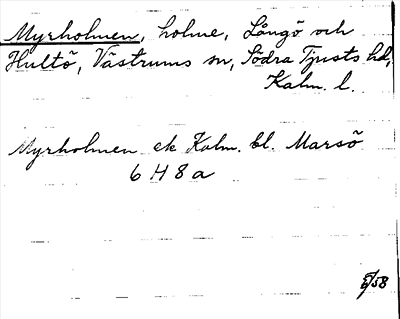 Myrholmen, holme, Långö och
Hultö, Västrums sn, Södra Tjusts hd,
Kalm. l.
Myrholmen ek Kalm. bl. Marsö
6 H 8 a
/58